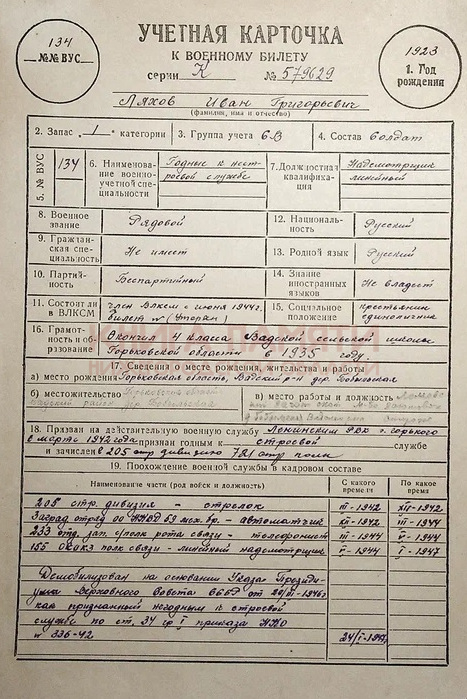 134
№№ ВУС
УЧЕТНАЯ КАРТОЧКА
К ВОЕННОМУ БИЛЕТУ
серии К № 579629
1923
1. Год
рождения
Ляхов Иван Григорьевич
(фамилия, имя и отчество)
2. Запас 1 категории
3. Группа учета
4. Состав Солдат
5. № ВУС
134
6. Наименование военно-учетной специальности
Годные к нестроевой службе
7. Должностная квалификация
Надсмотрщик линейный
8. Военное звание
Рядовой
12. Национальность
Русский
9. Гражданская специальность
Не имеет
13. Родной язык
Русский
10. Партийность
Беспартийный
14. Знание иностранных языков
Не владеет
11. Состоял ли в ВЛКСМ
член ВЛКСМ с июня 1944г.
билет №
15. Социальное положение
крестьянин единоличник
16. Грамотность и образование
Окончил 4 класса Вадской сельской школы
Горьковской области в 1935 году.
17. Сведения о месте рождения, жительства и работы
а) место рождения Горьковская область Вадский р-н дер.
б) местожительство
в) место работы и должность
18. Призван на действительную военную службу Ленинским РВК г. Горького
в марте 1942 года признан годным к строевой службе
и зачислен в 205 стр дивизию 721 стр полк
19. Прохождение военной службы в кадровом составе
Наименование части (род войск и должность)
С какого времени
По какое время
205 стр. дивизия - стрелок III-1942 XII-1942
Заград отряд 59 - автоматчик XII-1942 III-1944
233 отд. зап. рота связи - телефонист III-1944 V-1944
155 полк связи - линейный надсмотрщик V-1944 I-1947
Демобилизован на основании Указа Президи-
ума Верховного Совета СССР от 20/III-1946г
как признанный негодным к строевой
службе по ст. 34 гр I приказа НКО
№ 336-42
24/I-1947